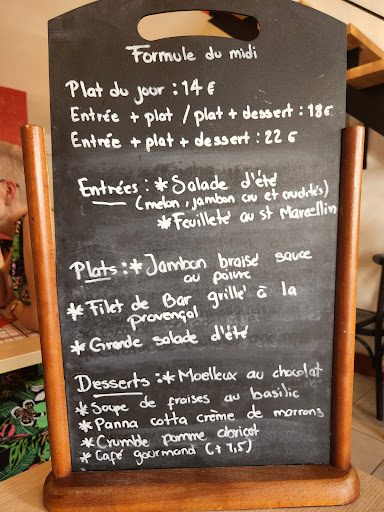 Formule du midi
Plat du jour : 14 €
Entrée + plat / plat + dessert : 18€
Entrée + plat + dessert : 22 €
Entrées : * Salade d'été
(melon, jambon cru et crudités)
* Feuilleté au st Marcellin
Plats : * Jambon braisé sauce
au poivre
* Filet de Bar grillé à la
provençal
* Grande salade d'été
Desserts : * Moelleux au chocolat
* Soupe de fraises au basilic
* Panna cotta crème de marrons
* Crumble pomme abricot
* Café gourmand (+ 1,5)